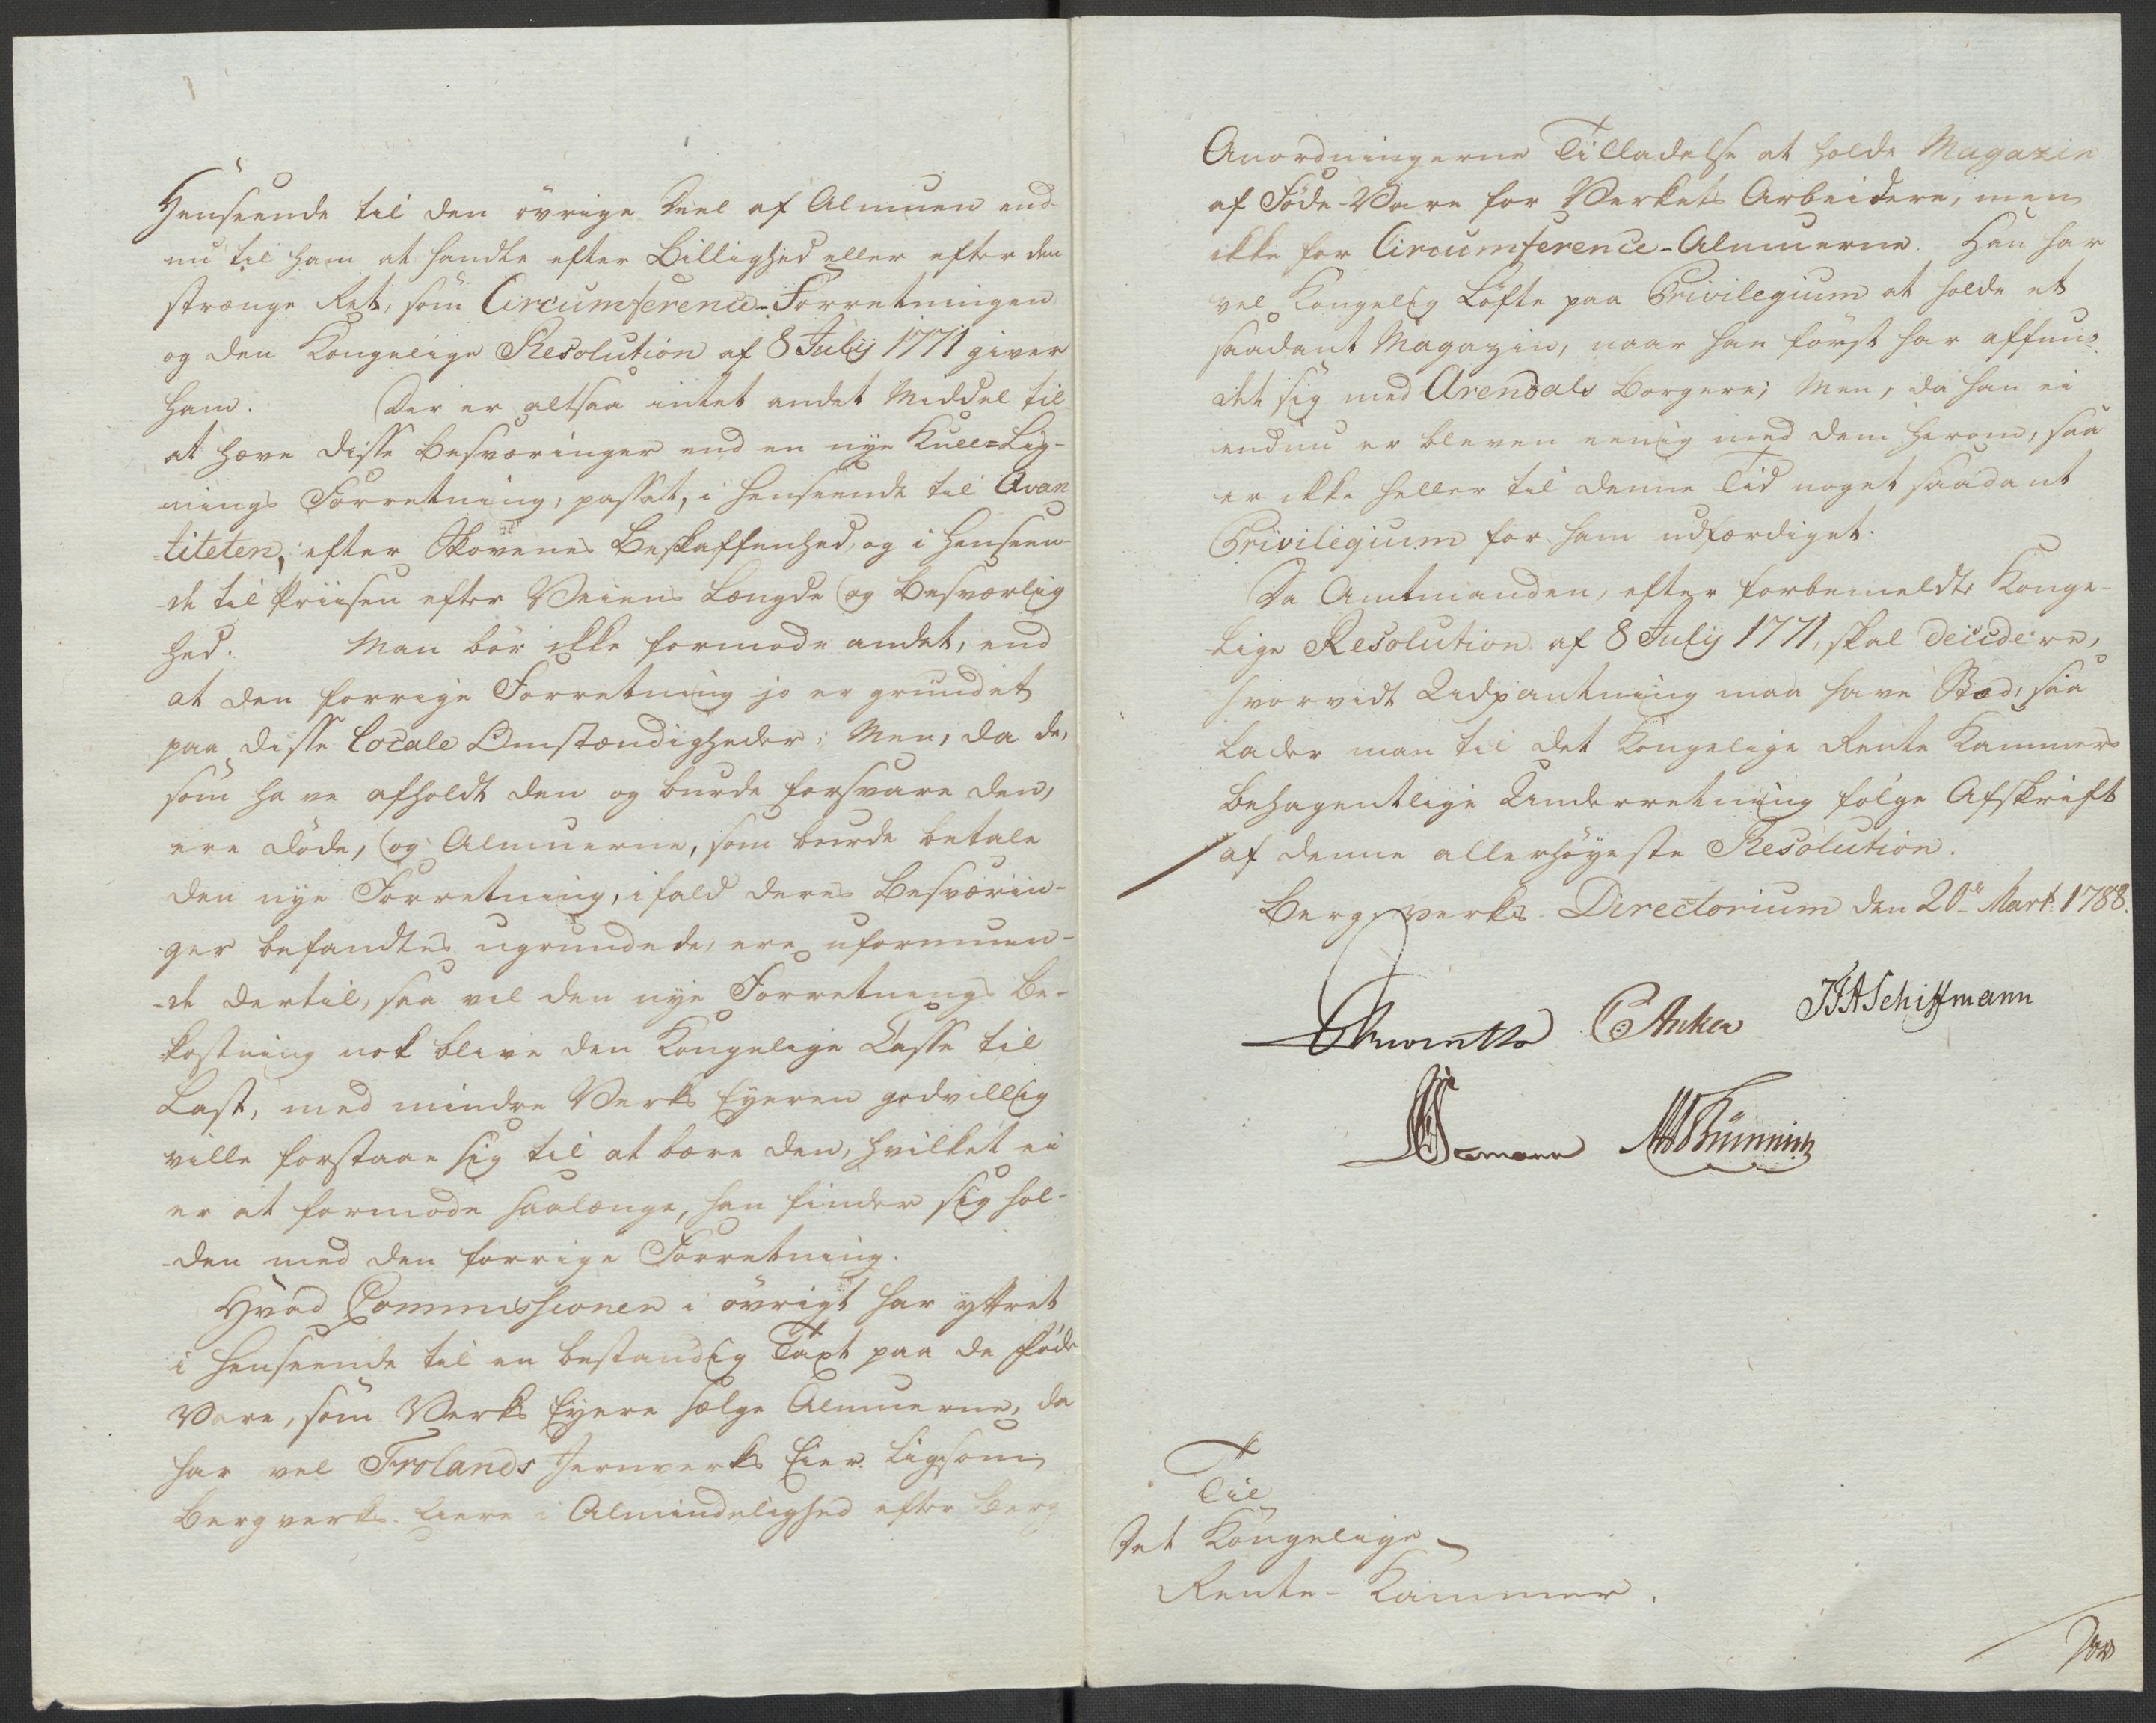 Henseende til den övrige Deel af Almuen end-
nu til ham at handle efter Billighed eller efter den
strænge Ret, som Circumference-Forretningen
og den Kongelige Resolution af 8 Julij 1771 giver
ham. Der er altsaa intet andet Middel til
at hæve disse Besværinger end en nye Kull-Lig-
nings Forretning, passet, i Henseende til Qvan
titeten, efter Skovenes Beskaffenhed, og i Henseen-
de til Priisen efter Veiens Længde og Besværlig
hed. Man bör ikke formode andet, end
at den forrige Forretning jo er grundet
paa disse locale Omstændigheder; Men, da de,
som have afholdt den og burde forsvare den,
ere döde, og Almuerne, som burde betale
den nye Forretning, ifald deres Besværin-
ger befandtes ugrundede, ere uformuen-
de dertil, saa vil den nye Forretnings Be-
kostning nok blive den Kongelige Casse til
Last, med mindre Verks Eyeren godvillig
ville forstaae sig til at bære den, hvilket ei
er at formode saalænge, han finder sig hol-
den med den forrige Forretning.
Hvad Commissionen i övrigt har yttret
i Henseende til en bestandig Taxt paa de Föde
Vare, som Verks Eyere sælge Almuerne, da
har vel Frolands Jernverks Eier ligesom
Bergverks-Eiere i Almindelighed efter Berg
Anordningerne Tilladelse at holde Magazin
af Föde-Vare for Verkets Arbeidere, men
ikke for Circumference-Almuerne. Han har
vel Kongelig Löfte paa Privilegium at holde et
saadant Magazin, naar han först har affun-
det sig med Arendals Borgere; Men, da han ei
endnu er bleven eenig med dem herom, saa
er ikke heller til denne Tid noget saadant
Privilegium for ham udfærdiget.
Da Amtmanden, efter forbemeldte Konge-
lige Resolution af 8 Julij 1771, skal decidere,
hvorvidt Udpantning maa have Stæd, saa
lader man til det Kongelige Rente Kammers
behagentlige Underretning fölge Afskrift
af denne allerhöyeste Resolution.
Bergverks-Directorium den 20de Mart. 1788.
C Anker JFASchiffmann
Til
Det Kongelige
Rente-Kammer.